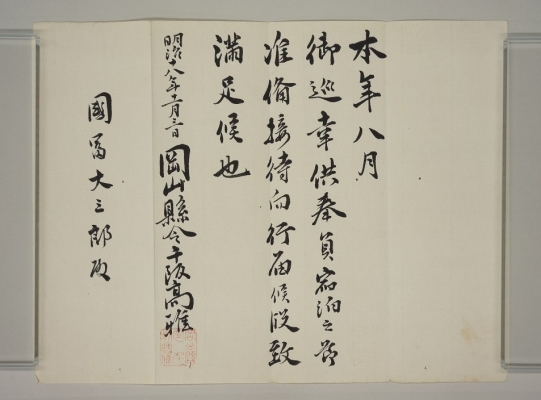 本年八月
御巡幸供奉員宿泊之節
准備接待向行届候段致
満足候也
明治十八年十二月三日
岡山縣令千阪高雅
國冨大三郎殿